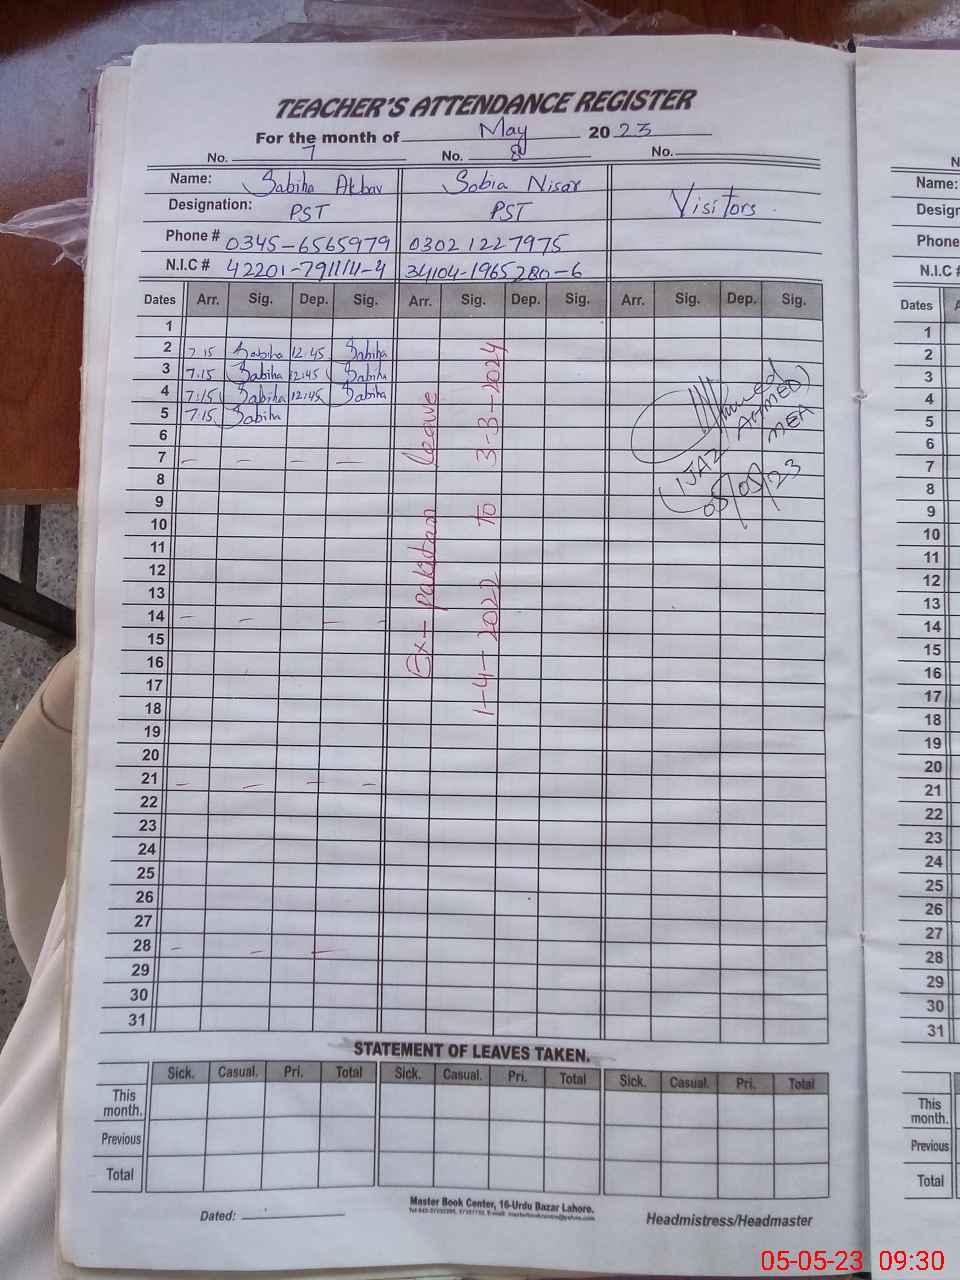 TEACHER'S ATTENDANCE REGISTER
For the month of May 2023
No. 7 No. 8 No.
Name: Sabiha Akbar Sobia Nisar Visitors.
Designation: PST PST
Phone # 0345-6565979 0302 1227975
N.I.C # 42201-791111-4 34104-1965280-6
Dates Arr. Sig. Dep. Sig. Arr. Sig. Dep. Sig. Arr. Sig. Dep. Sig.
1
2 7.15 Sabiha 12:45 Sabiha
3 7:15 Sabiha 12:45 Sabiha
4 7:15 Sabiha 12:45 Sabiha
5 7:15 Sabiha
6
7 - - - -
8
9
10
11
12
13
14 - - - -
15
16
17
18
19
20
21 - - - -
22
23
24
25
26
27
28 - - -
29
30
31
Ex-Pakistan Leave
1-4-2022 to 3-3-2024
Ahmed
(IJAZ AHMED)
MEA
05/05/23
STATEMENT OF LEAVES TAKEN.
Sick. Casual. Pri. Total Sick. Casual. Pri. Total Sick. Casual. Pri. Total
This month.
Previous
Total
Master Book Center, 16-Urdu Bazar Lahore.
Dated: Headmistress/Headmaster
N
Name:
Desig
Phone
N.I.C #
Dates
1
2
3
4
5
6
7
8
9
10
11
12
13
14
15
16
17
18
19
20
21
22
23
24
25
26
27
28
29
30
31
This month.
Previous
Total
05-05-23 09:30